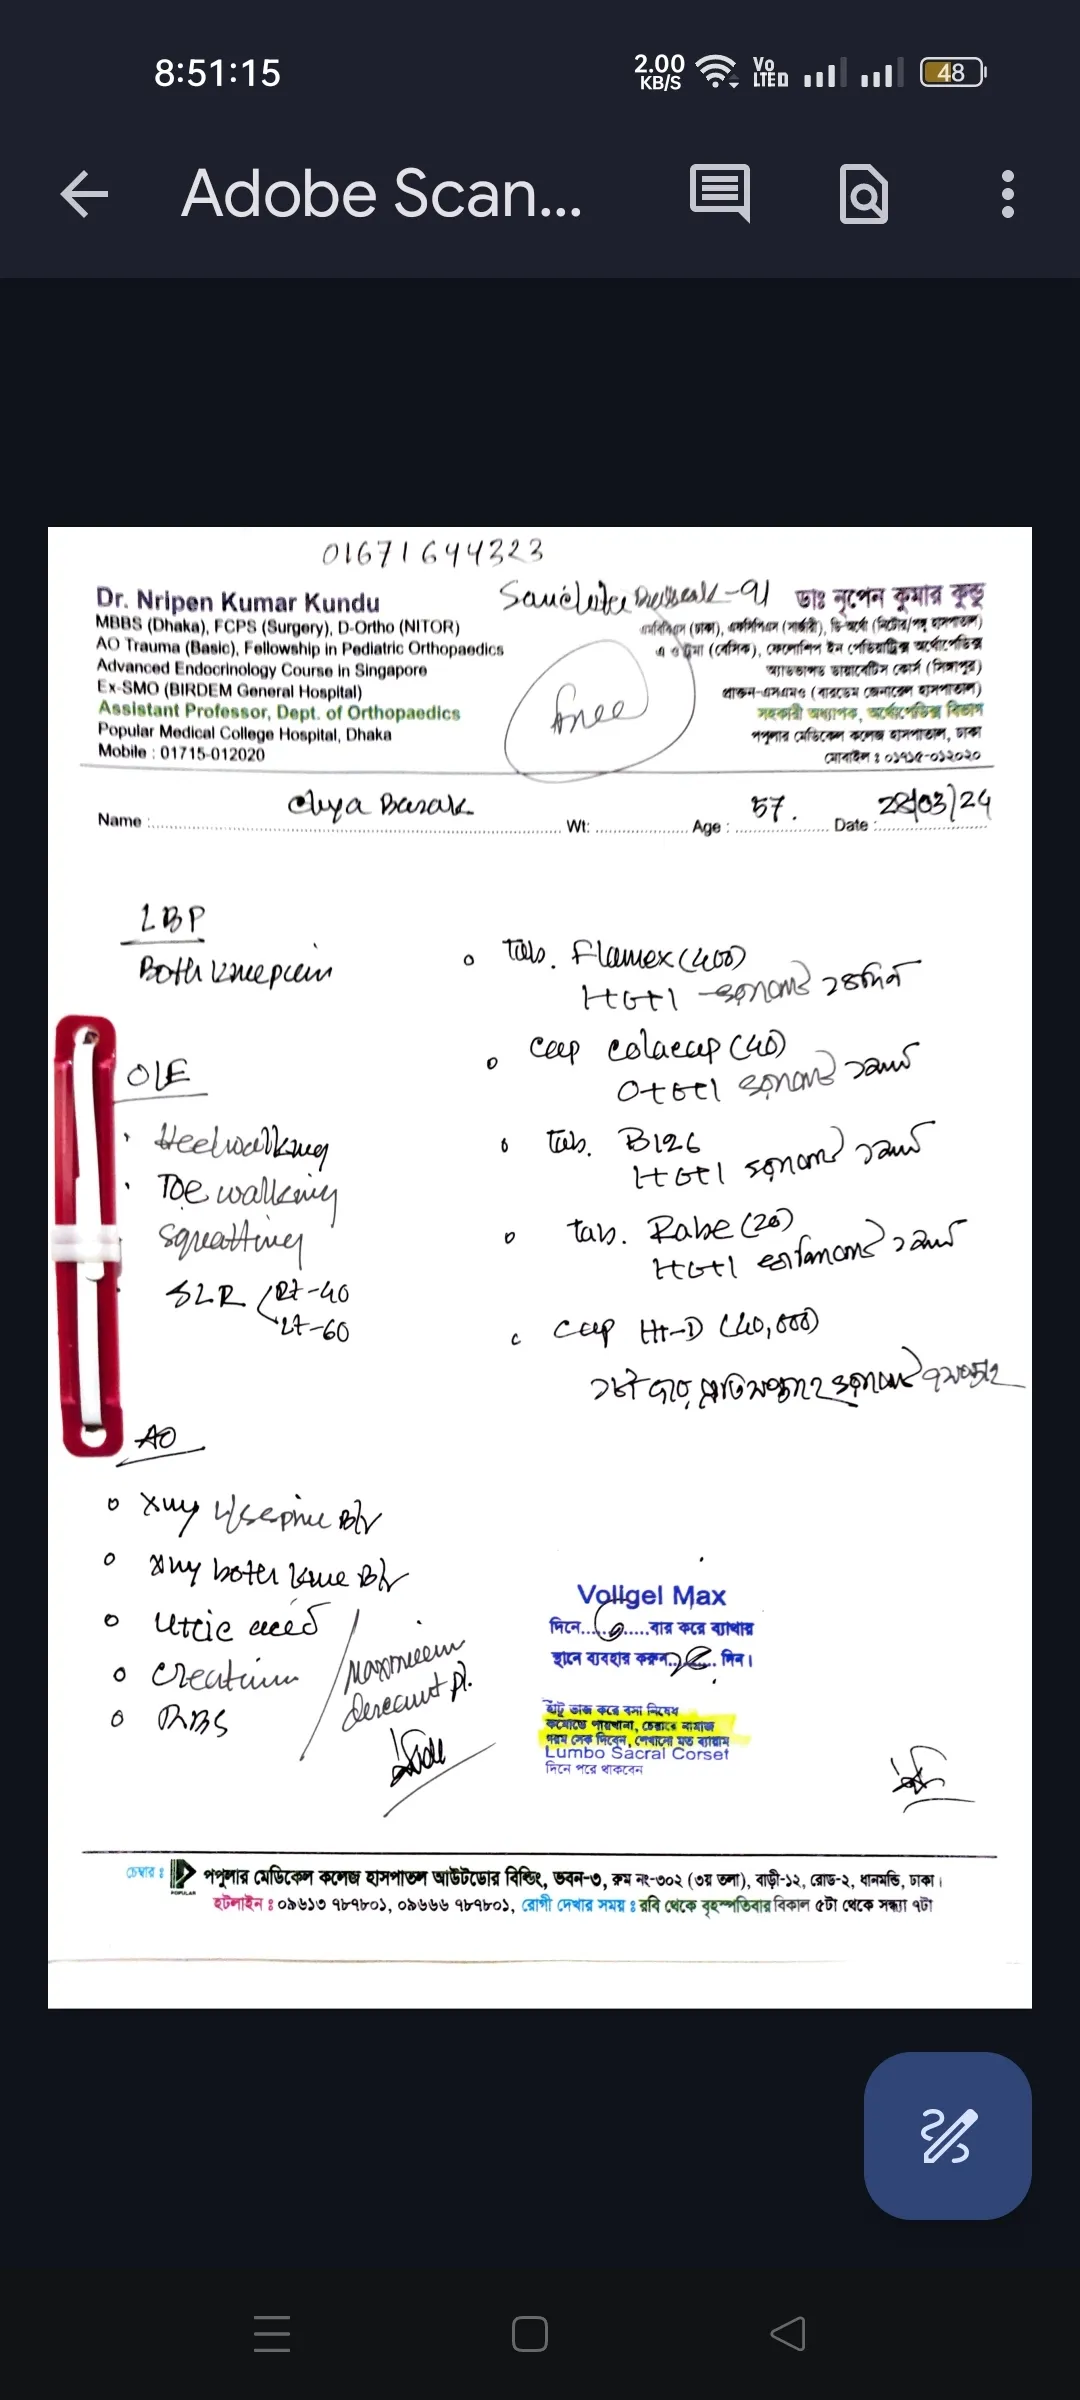 8:51:15
2.00 KB/S
Vo LTED
48
Adobe Scan...
01671644323
Dr. Nripen Kumar Kundu
MBBS (Dhaka), FCPS (Surgery), D-Ortho (NITOR)
AO Trauma (Basic), Fellowship in Pediatric Orthopaedics
Advanced Endocrinology Course in Singapore
Ex-SMO (BIRDEM General Hospital)
Assistant Professor, Dept. of Orthopaedics
Popular Medical College Hospital, Dhaka
Mobile : 01715-012020
-91
ডাঃ নৃপেন কুমার কুন্ডু
এমবিবিএস (ঢাকা), এফসিপিএস (সার্জারী), ডি-অর্থো (নিটোর/পঙ্গু হাসপাতাল)
এ ও ট্রমা (বেসিক), ফেলোশিপ ইন পেডিয়াট্রিক্স অর্থোপেডিক্স
অ্যাডভান্সড ডায়াবেটিস কোর্স (সিঙ্গাপুর)
প্রাক্তন-এসএমও (বারডেম জেনারেল হাসপাতাল)
সহকারী অধ্যাপক, অর্থোপেডিক্স বিভাগ
পপুলার মেডিকেল কলেজ হাসপাতাল, ঢাকা
মোবাইল : ০১৭১৫-০১২০২০
Name : Basak Wt: Age : 57. Date : 28/03/24
LBP
Both knee pain
O/E
Heel walking
Toe walking
Squatting
SLR Rt-40
Lt-60
Tab. Flamex (400)
1+0+1
Cap Colacap (40)
0+0+1
Tab. B126
1+0+1
tab. Rabe (20)
1+0+1
Cap (40,000)
X-ray L/S spine B/V
X-ray both knee B/V
Uric acid
Creatinine
RBS
Maximum discount pl.
Voligel Max
দিনে.........বার করে ব্যাথার
স্থানে ব্যবহার করুন......... দিন।
হাঁটু ভাজ করে বসা নিষেধ
কমোডে পায়খানা, চেয়ারে নামাজ
গরম সেক দিবেন, শেখানো মত ব্যায়াম
Lumbo Sacral Corset
দিনে পরে থাকবেন
চেম্বার : পপুলার মেডিকেল কলেজ হাসপাতাল আউটডোর বিল্ডিং, ভবন-৩, রুম নং-৩০২ (৩য় তলা), বাড়ী-১২, রোড-২, ধানমন্ডি, ঢাকা।
POPULAR
হটলাইন : ০৯৬১৩ ৭৮৭৮০১, ০৯৬৬৬ ৭৮৭৮০১, রোগী দেখার সময় : রবি থেকে বৃহস্পতিবার বিকাল ৫টা থেকে সন্ধ্যা ৭টা